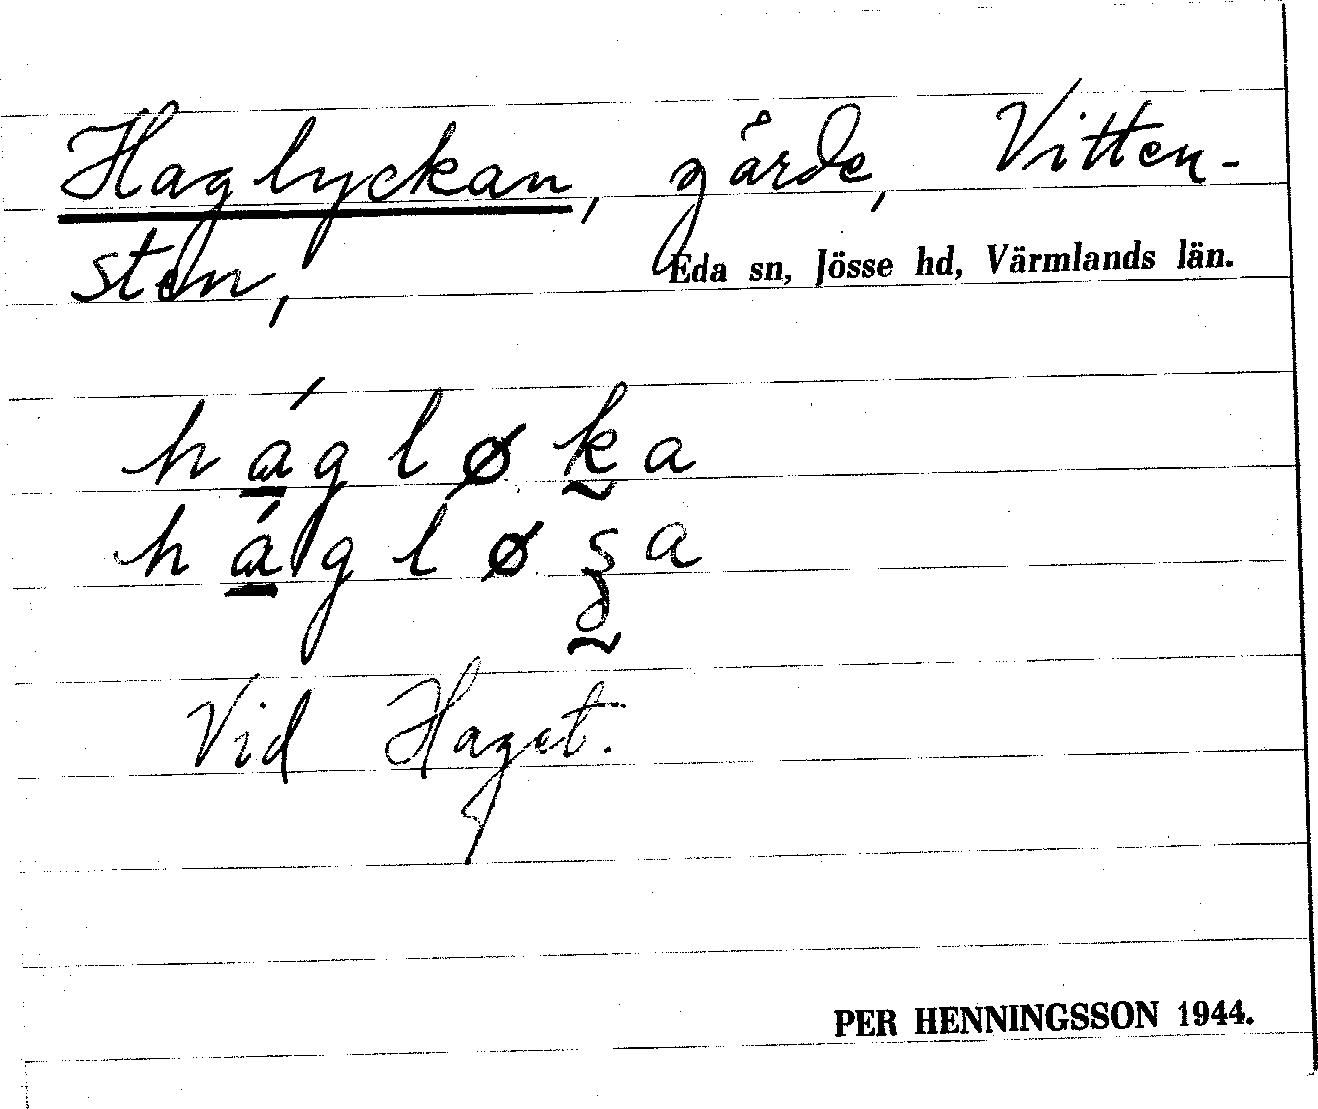 Haglyckan, gärde, Vitten-
sten,
Eda sn, Jösse hd, Värmlands län.
hágløka
Vid Haget.
PER HENNINGSSON 1944.